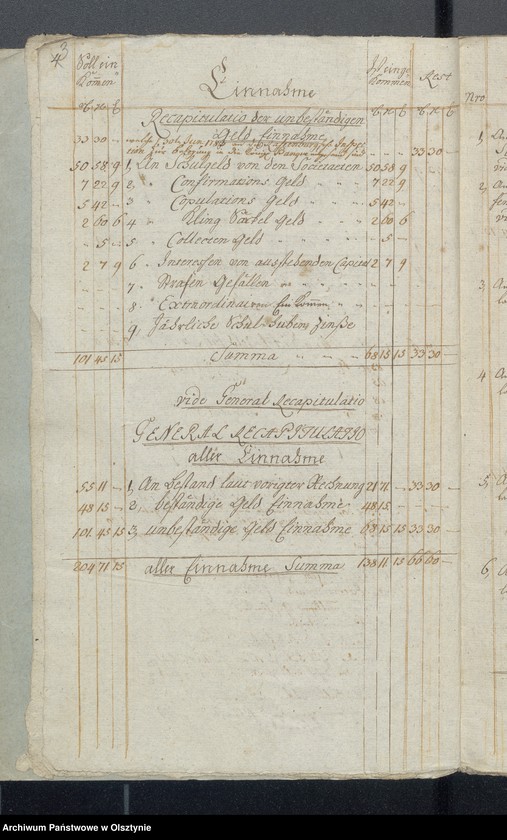 4
Soll ein
kommen
Einnahme
Ist einge
kommen
Rest
Nro
Recapitulatio der unbeständigen
Geld Einnahme
33 30 33 30
50 58 9 1, An Schulgeld von den Societaeten 50 58 9
7 22 9 2, Confirmations Geld 7 22 9
5 42 3 Copulations Geld 5 42
2 60 6 4 Kling Säckel Geld 2 60 6
5 5 Collecten Geld 5
2 7 9 6 Interessen von ausstehenden Capital 2 7 9
7 Strafen Gefällen
8 Extraordinairen Einkommen
9 Jährliche Schul Huben Zinße
101 45 15 Summa 68 15 15 33 30
vide General Recapitulatio
GENERAL RECAPITULATIO
aller Einnahme
55 11 1, An Bestand laut voriger Rechnung 21 71 33 30
48 15 2, beständige Geld Einnahme 48 15
101 45 15 3, unbeständige Geld Einnahme 68 15 15 33 30
204 71 15 aller Einnahme Summa 138 11 15 66 60
1,
2,
3,
4
5,
6,
Archiwum Państwowe w Olsztynie